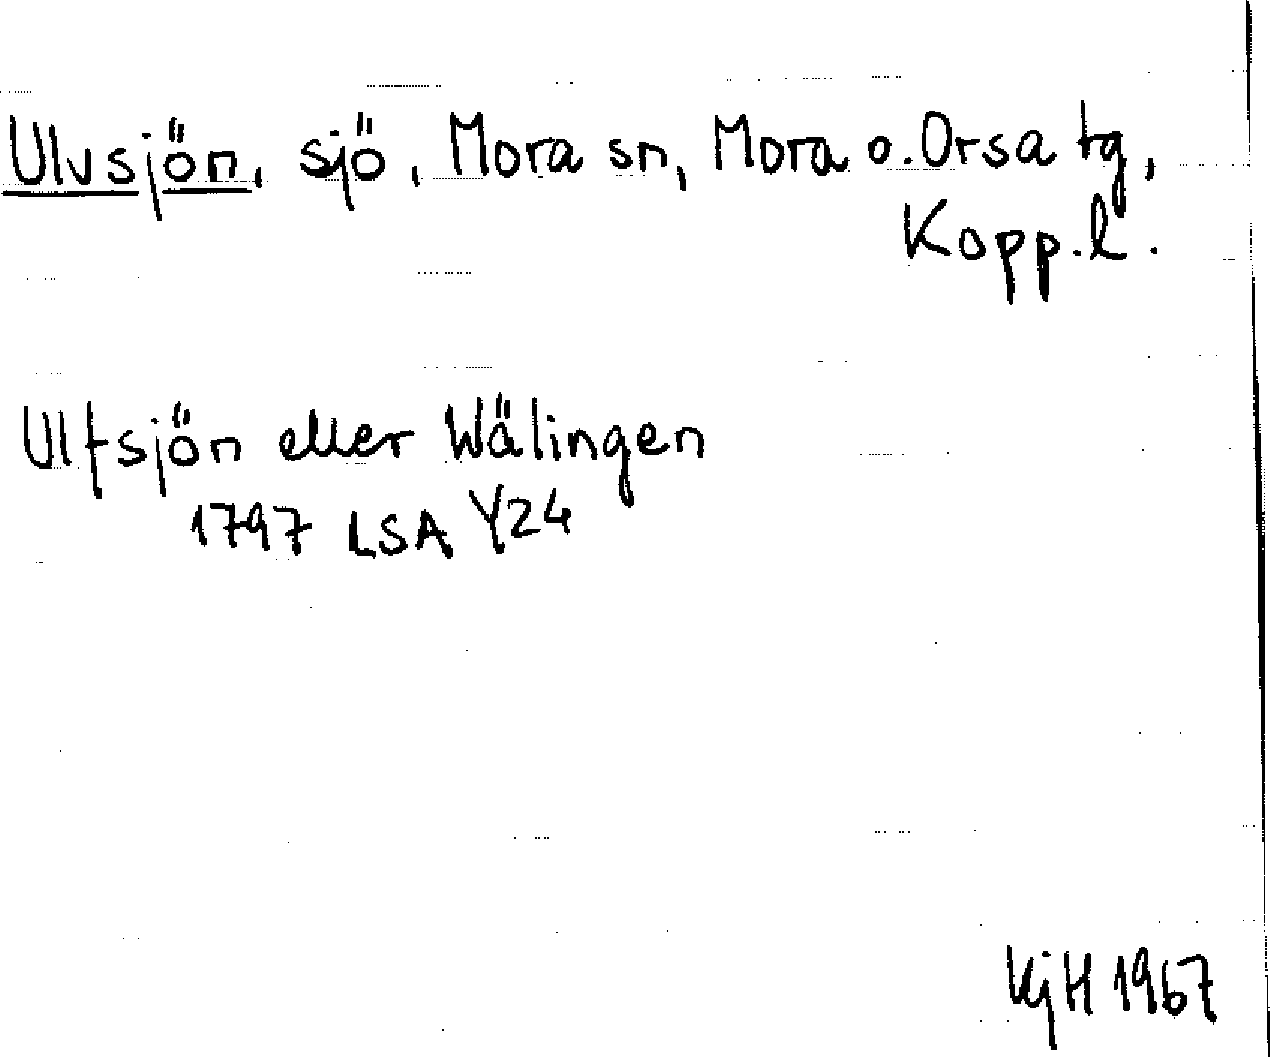 Ulvsjön, sjö, Mora sn, Mora o. Orsa tg,
Kopp.l.
Ulfsjön eller Wälingen
1797 LSA Y24
KjH 1967